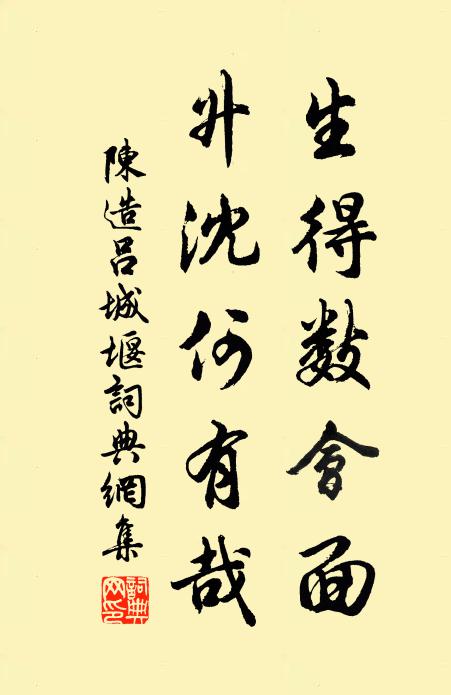 生得数會面
升沈何有哉
陳造吕城堰詞典網集
詞典网印